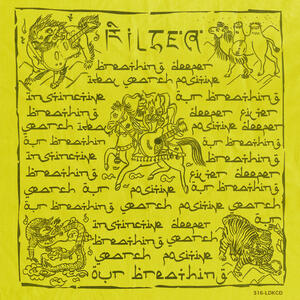 FILTER
breathing deeper
idea search positive
instinctive our breathing
breathing deeper filter
search idea positive deeper
our breathin our breathing
instinctive search positive
breathing filter deeper
search our positive search
instinctive deeper
breathing search
search positive
our breathing
516-LDKCD